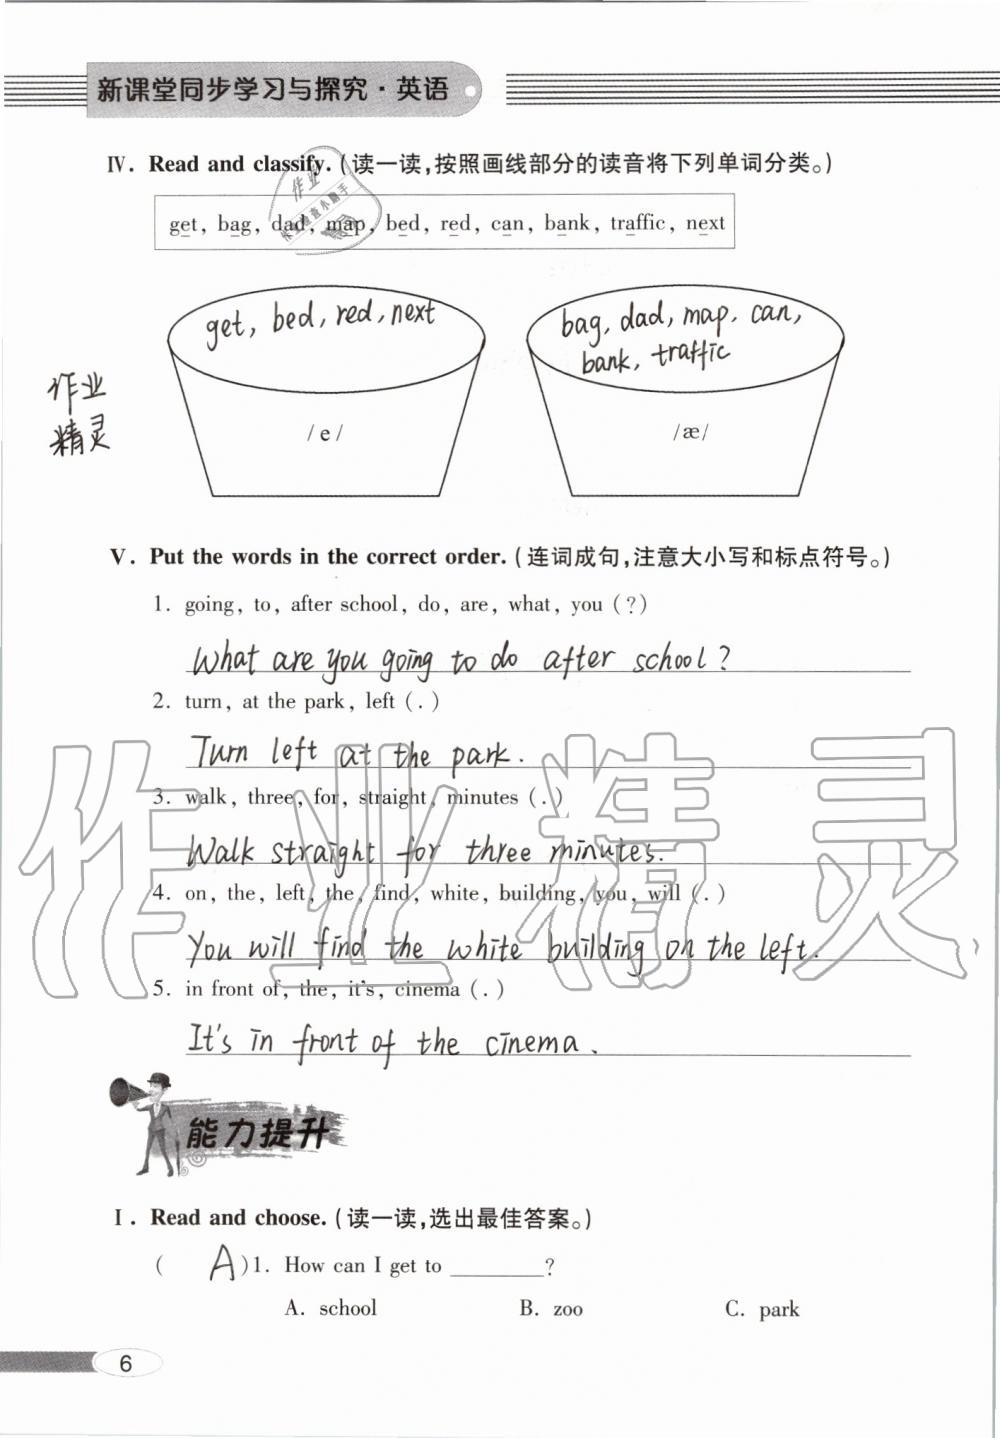 新课堂同步学习与探究·英语
Ⅳ. Read and classify. (读一读,按照画线部分的读音将下列单词分类。)
get, bag, dad, map, bed, red, can, bank, traffic, next
get, bed, red, next
bag, dad, map, can,
bank, traffic
作业
精灵
/e/
/æ/
Ⅴ. Put the words in the correct order. (连词成句,注意大小写和标点符号。)
1. going, to, after school, do, are, what, you (?)
What are you going to do after school?
2. turn, at the park, left (.)
Turn left at the park.
3. walk, three, for, straight, minutes (.)
Walk straight for three minutes.
4. on, the, left, the, find, white, building, you, will (.)
You will find the white building on the left.
5. in front of, the, it's, cinema (.)
It's in front of the cinema.
作业精灵
能力提升
Ⅰ. Read and choose. (读一读,选出最佳答案。)
( A )1. How can I get to ________?
A. school B. zoo C. park
6